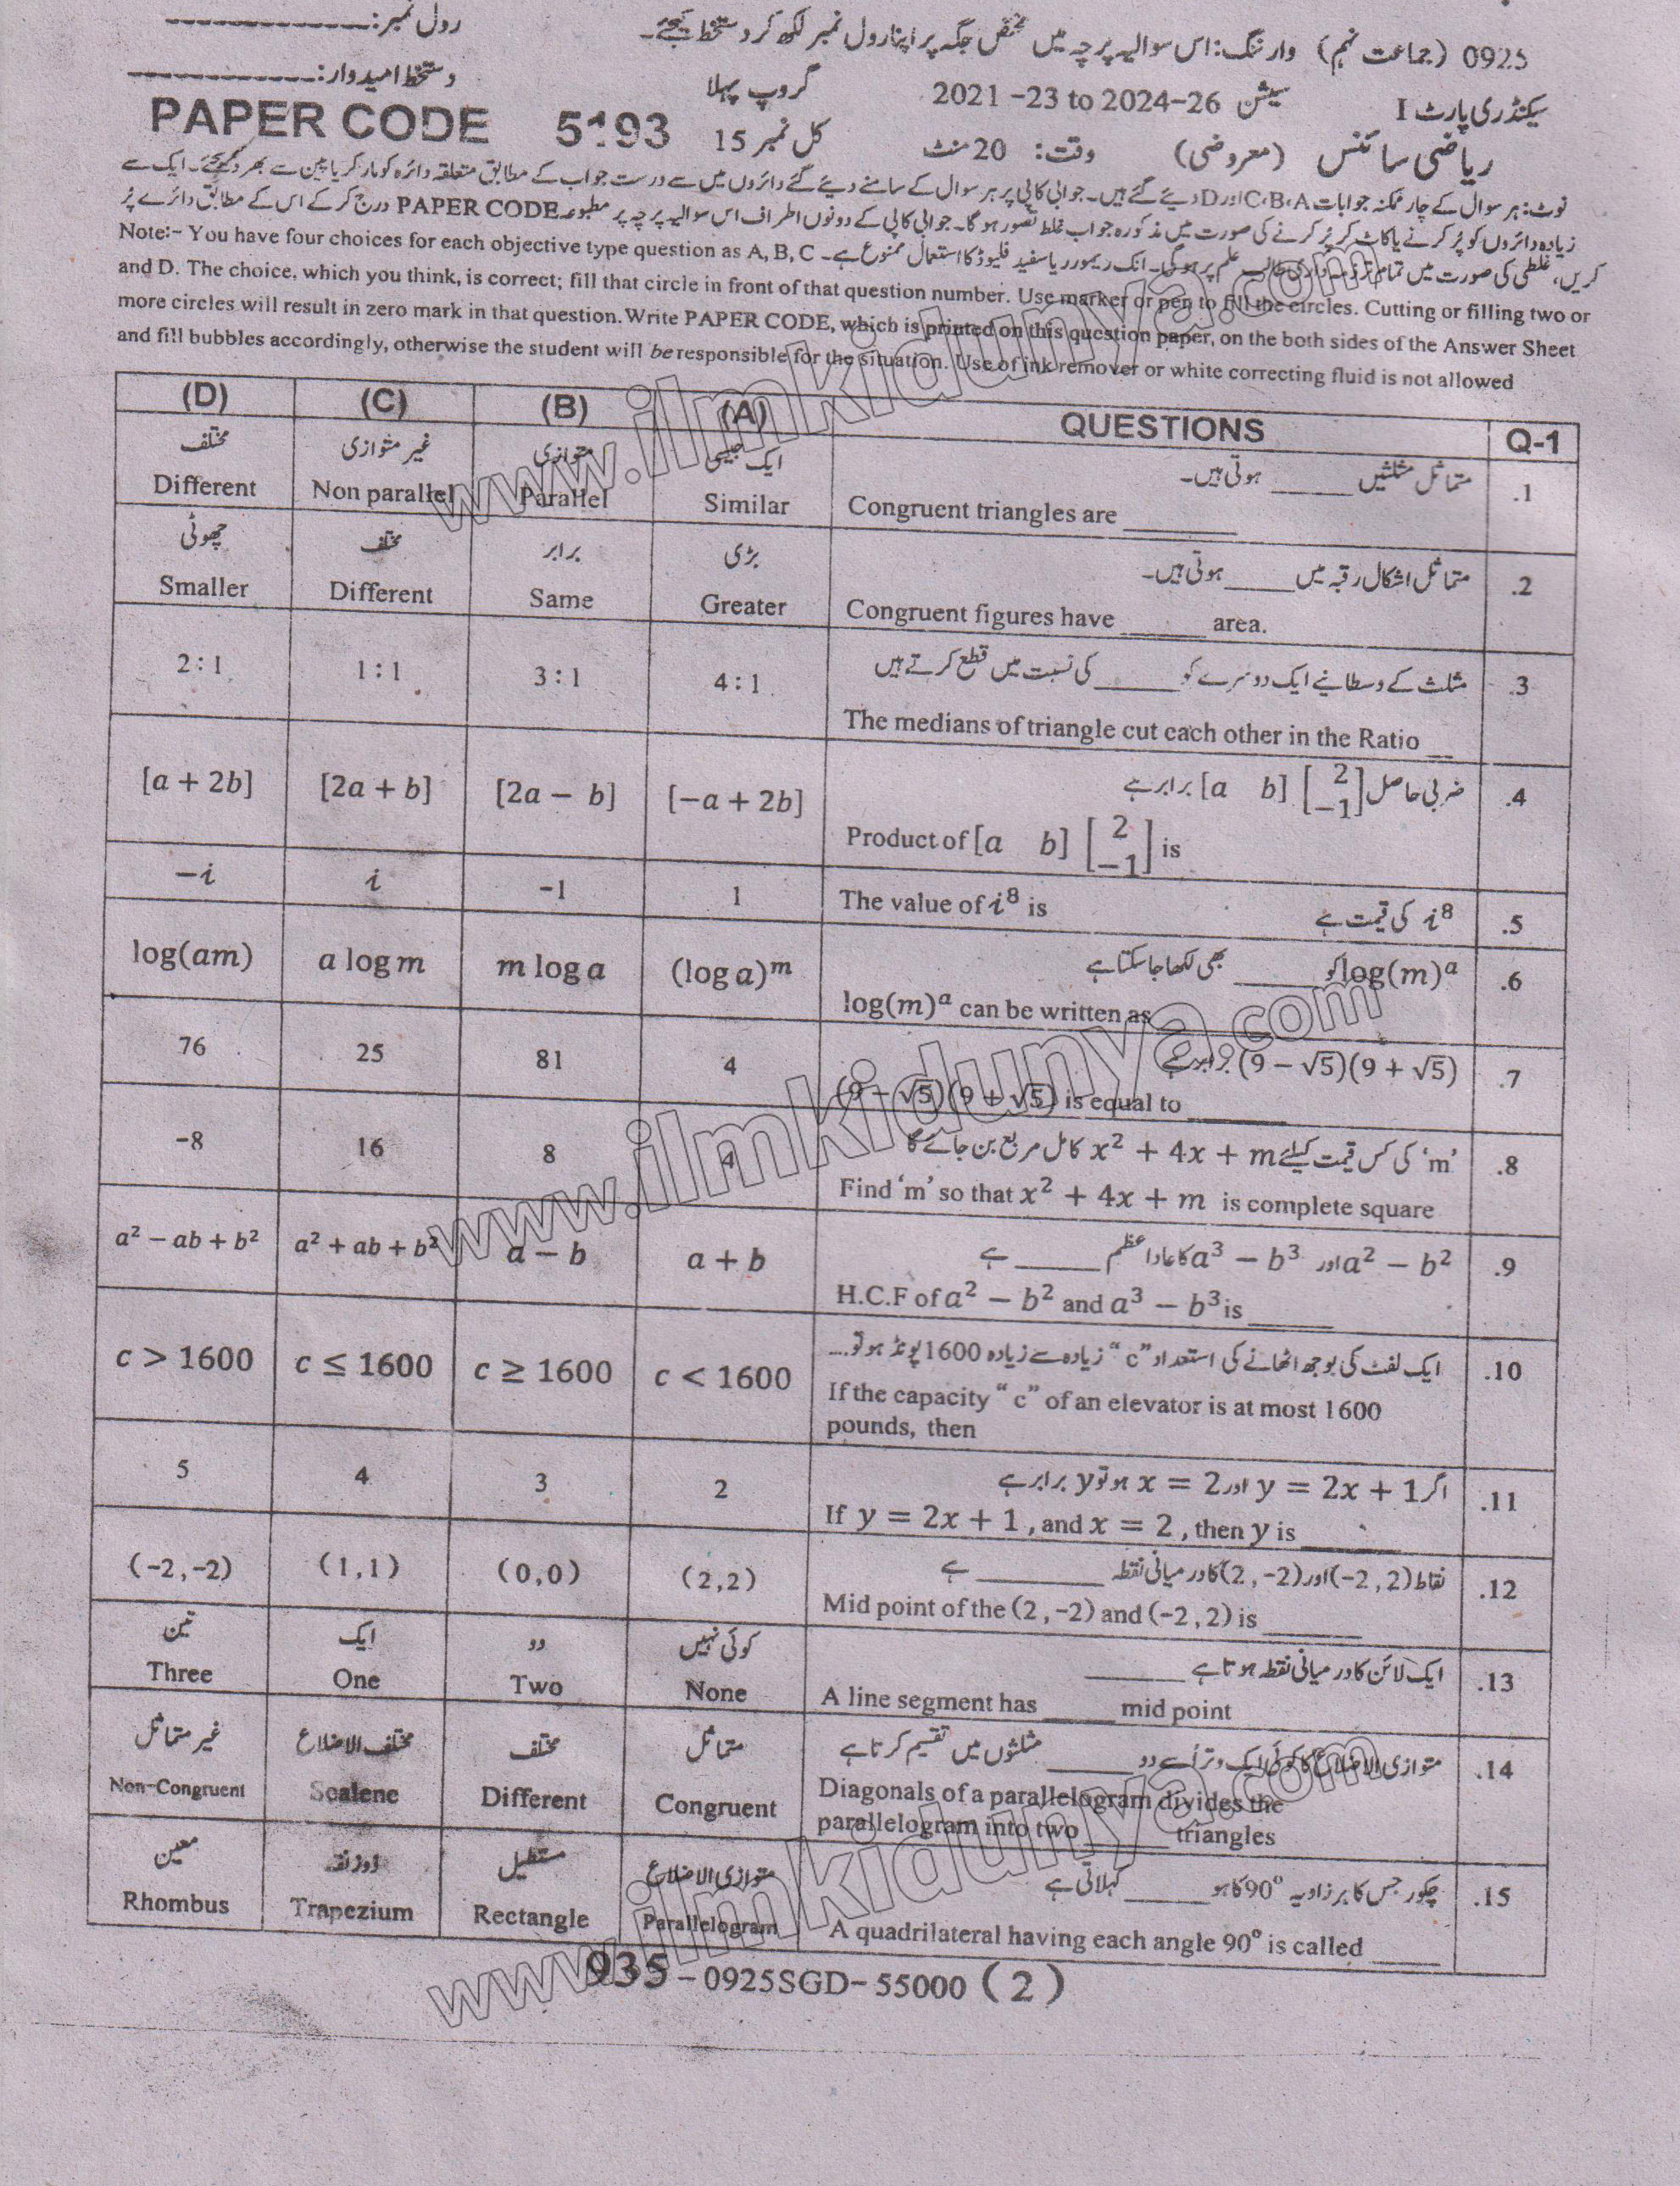 رول نمبر:
0925 (جماعت نہم) وارننگ: اس سوالیہ پرچہ میں مختص جگہ پر اپنا رول نمبر لکھ کر دستخط کیجئے۔
دستخط امیدوار:
سیکنڈری پارٹ I سیشن 2021 -23 to 2024-26 گروپ پہلا
PAPER CODE 5193
ریاضی سائنس (معروضی) وقت: 20 منٹ کل نمبر 15
نوٹ: ہر سوال کے چار ممکنہ جوابات A، B، C اور D دیئے گئے ہیں۔ جوابی کاپی پر ہر سوال کے سامنے دیئے گئے دائروں میں سے درست جواب کے مطابق متعلقہ دائرہ کو مارکر یا پین سے بھر دیجئے۔ ایک سے
زیادہ دائروں کو پُر کرنے یا کاٹ کر پُر کرنے کی صورت میں مذکورہ جواب غلط تصور ہو گا۔ جوابی کاپی کے دونوں اطراف اس سوالیہ پرچہ پر مطبوعہ PAPER CODE درج کر کے اس کے مطابق دائرے پُر
کریں، غلطی کی صورت میں تمام تر ذمہ داری طالب علم پر ہوگی۔ انک ریموور یا سفید فلیوڈ کا استعمال ممنوع ہے۔
Note:- You have four choices for each objective type question as A, B, C
and D. The choice, which you think, is correct; fill that circle in front of that question number. Use marker or pen to fill the circles. Cutting or filling two or
more circles will result in zero mark in that question. Write PAPER CODE, which is printed on this question paper, on the both sides of the Answer Sheet
and fill bubbles accordingly, otherwise the student will be responsible for the situation. Use of ink remover or white correcting fluid is not allowed
(D) (C) (B) (A) QUESTIONS Q-1
مختلف غیر متوازی متوازی ایک جیسی متماثل مثلثیں ______ ہوتی ہیں۔ .1
Different Non parallel Parallel Similar Congruent triangles are ________
چھوٹی مختلف برابر بڑی متماثل اشکال رقبہ میں _____ ہوتی ہیں۔ .2
Smaller Different Same Greater Congruent figures have ______ area.
2 : 1 1 : 1 3 : 1 4 : 1 مثلث کے وسطانیے ایک دوسرے کو ______ کی نسبت میں قطع کرتے ہیں .3
The medians of triangle cut each other in the Ratio __
[a + 2b] [2a + b] [2a − b] [−a + 2b] ضربی حاصل [a b] [2 −1] برابر ہے .4
Product of [a b] [2 −1] is
−i i -1 1 The value of i⁸ is i⁸ کی قیمت ہے .5
log(am) a log m m log a (log a)ᵐ log(m)ᵃ کو ______ بھی لکھا جا سکتا ہے .6
log(m)ᵃ can be written as ________
76 25 81 4 (9 − √5)(9 + √5) برابر ہے .7
(9 − √5)(9 + √5) is equal to _______
-8 16 8 4 'm' کی کس قیمت کیلئے x² + 4x + m کامل مربع بن جائے گا .8
Find 'm' so that x² + 4x + m is complete square
a² − ab + b² a² + ab + b² a − b a + b a² − b² اور a³ − b³ کا عاد اعظم ______ ہے .9
H.C.F of a² − b² and a³ − b³ is ______
c > 1600 c ≤ 1600 c ≥ 1600 c < 1600 ایک لفٹ کی بوجھ اٹھانے کی استعداد "c" زیادہ سے زیادہ 1600 پونڈ ہو تو... .10
If the capacity " c" of an elevator is at most 1600
pounds, then
5 4 3 2 اگر y = 2x + 1 اور x = 2 ہو تو y برابر ہے .11
If y = 2x + 1 , and x = 2 , then y is _______
(-2,-2) (1,1) (0,0) (2,2) نقاط (-2,2) اور (2,-2) کا درمیانی نقطہ _________ ہے .12
Mid point of the (2,-2) and (-2,2) is _______
تین ایک دو کوئی نہیں ایک لائن کا درمیانی نقطہ ہوتا ہے _______ .13
Three One Two None A line segment has _____ mid point
غیر متماثل مختلف الاضلاع مختلف متماثل متوازی الاضلاع کا کوئی ایک وتر اُسے دو ______ مثلثوں میں تقسیم کرتا ہے .14
Non-Congruent Scalene Different Congruent Diagonals of a parallelogram divides the
parallelogram into two ______ triangles
معین ذوزنقہ مستطیل متوازی الاضلاع چوکور جس کا ہر زاویہ 90° کا ہو ______ کہلاتی ہے .15
Rhombus Trapezium Rectangle Parallelogram A quadrilateral having each angle 90° is called _____
935 – 0925SGD– 55000 ( 2 )
www.ilmkidunya.com
www.ilmkidunya.com
www.ilmkidunya.com